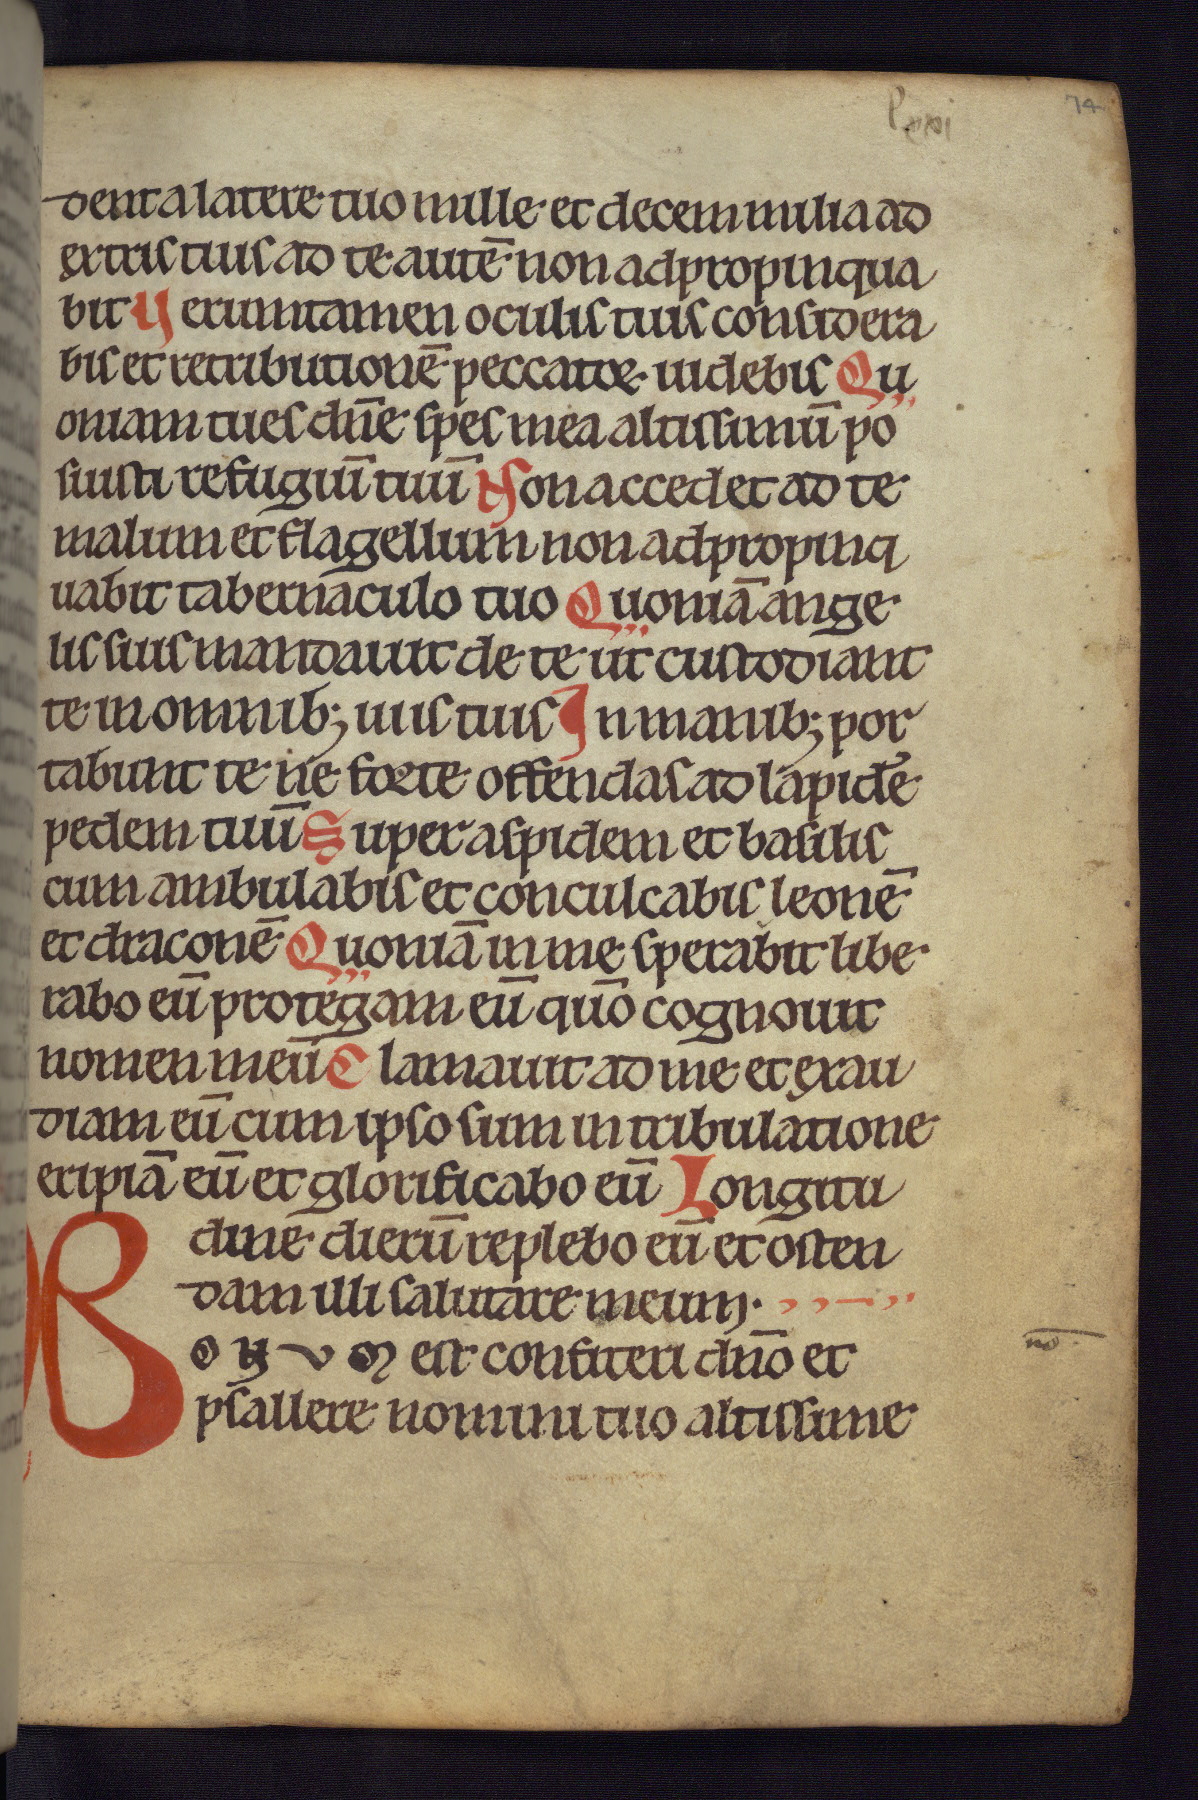 74
dent a latere tuo mille et decem milia ad
extris tuis ad te autē non adpropinqua
bit Uerumtamen oculis tuis considera
bis et retributionē peccatoꝝ uidebis Qu
oniam tu es dn̄e spes mea altissimū po
suisti refugiū tuū Non accedet ad te
malum et flagellum non adpropinq
uabit tabernaculo tuo Quoniā ange
lis suis mandauit de te ut custodiant
te in omnib; uiis tuis In manib; por
tabunt te ne forte offendas ad lapidē
pedem tuū Super aspidem et basilis
cum ambulabis et conculcabis leonē
et draconē Quoniā in me sperabit libe
rabo eū protegam eū quō cognouit
nomen meū Clamauit ad me et exau
diam eū cum ipso sum in tribulatione
eripiā eū et glorificabo eū Longitu
dine dierū replebo eū et osten
dam illi salutare meum.
BONUM est confiteri dn̄o et
psallere nomini tuo altissime